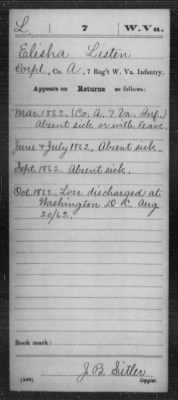 L 7 W. Va.
Elisha Listen
Corpl., Co. A, 7 Reg't W. Va. Infantry.
Appears on Returns as follows:
Mar. 1862. (Co. A. 7 Va. Inf.)
Absent sick or with leave.
June & July 1862. Absent sick.
Sept. 1862. Absent sick.
Oct. 1862. Loss discharged at
Washington D. C. Aug
20/62.
Book mark:
J. B. Sitler
Copyist.